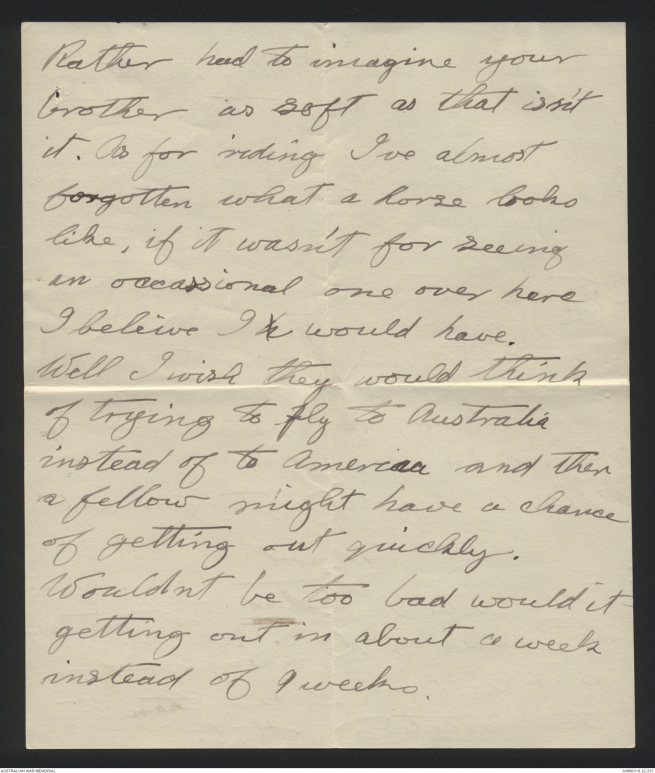 Rather hard to imagine your
brother as soft as that isn't
it. As for riding I've almost
forgotten what a horse looks
like, if it wasn't for seeing
an occassional one over here
I beleive I would have.
Well I wish they would think
of trying to fly to Australia
instead of to America and then
a fellow might have a chance
of getting out quickly.
Wouldnt be too bad would it
getting out in about a week
instead of 9 weeks.
AUSTRALIAN WAR MEMORIAL